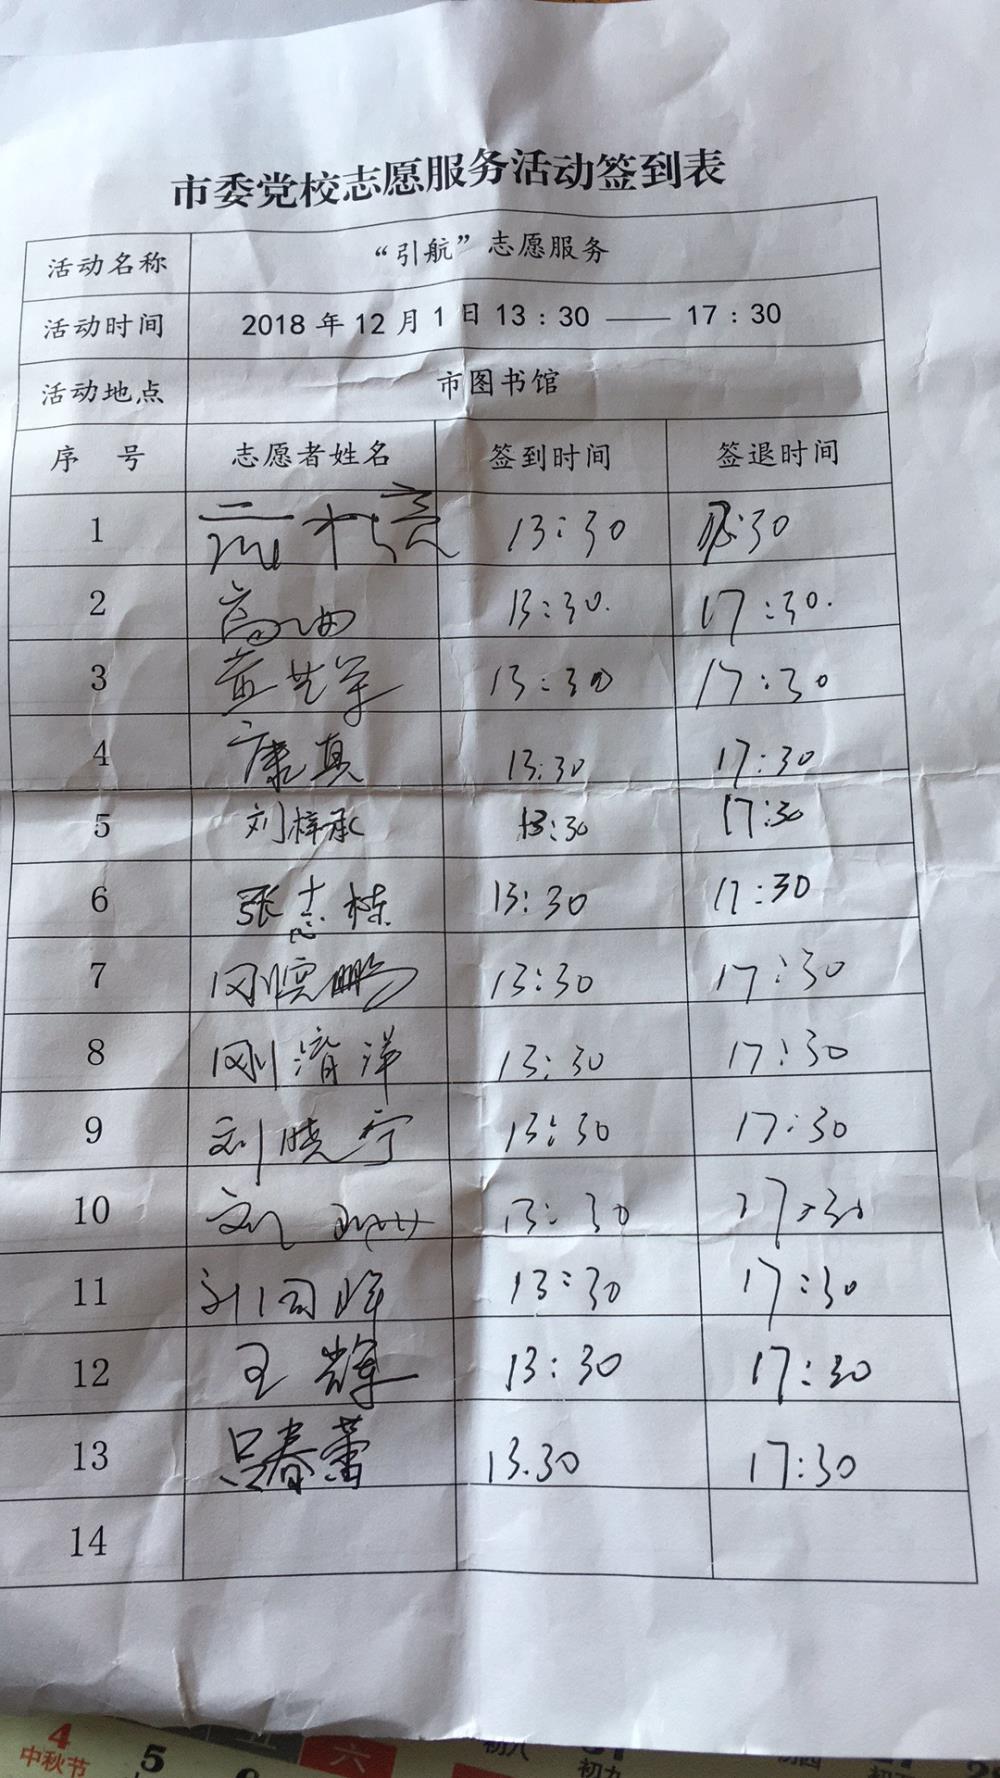 市委党校志愿服务活动签到表
活动名称 “引航”志愿服务
活动时间 2018年12月1日13:30 —— 17:30
活动地点 市图书馆
序 号 志愿者姓名 签到时间 签退时间
1 13:30 17:30
2 13:30. 17:30.
3 13:30 17:30
4 康真 13:30 17:30
5 刘梓承 13:30 17:30
6 张志栋 13:30 17:30
7 13:30 17:30
8 13:30 17:30
9 刘晓宁 13:30 17:30
10 刘 13:30 17:30
11 13:30 17:30
12 王辉 13:30 17:30
13 吕春蕾 13.30 17:30
14
4 五 六
中秋节 5 初八 初九